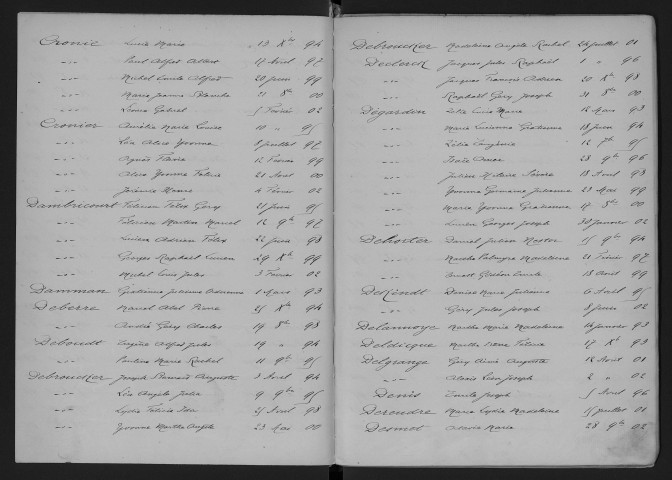 Cronie Lucie Marie 13 Xbre 94
-"- Paul Alfred Albert 17 Avril 97
-"- Michel Emile Alfred 20 Juin 99
-"- Marie Jeanne Blanche 21 8bre 00
-"- Léonce Gabriel 5 Février 02
Cronier Amélie Marie Louise 10 " 95
-"- Léa Alice Yvonne 8 Juillet 97
-"- Agnès Flavie 12 Février 99
-"- Alice Yvonne 21 Avril 00
-"- 4 Février 02
Dambricourt Félicien Félix Géry 21 Juin 95
-"- Félicien Martin Marcel 12 9bre 97
-"- Lucien Adrien Félix 22 Juin 98
-"- Georges Raphaël Lucien 29 Xbre 99
-"- Michel Louis Jules 3 Février 02
Damman 1 Mars 93
Deberre Marcel Abel Pierre 25 Xbre 94
-"- André Géry Charles 19 8bre 98
Deboudt Eugène Alfred Jules 19 " 94
-"- Pauline Marie Rachel 11 9bre 95
Debroucker Joseph Auguste 3 Avril 94
-"- Léa Angèle Julia 9 9bre 95
-"- Lydie Félicie Ida 25 Avril 98
-"- Yvonne Marthe Angèle 23 Mai 00
Debroucker Madeleine Angèle Rachel 24 Juillet 01
Declerck Jacques Jules Raphaël 1 " 96
-"- Jacques François Adrien 20 Xbre 98
-"- Raphaël Géry Joseph 31 8bre 00
Dégardin Marie 12 Mars 93
-"- Marie Lucienne 18 Juin 94
-"- Lélia Eugénie 12 7bre 95
-"- 28 9bre 96
-"- 18 Avril 98
-"- Yvonne Germaine Julienne 23 Mai 99
-"- Marie Yvonne 17 8bre 00
-"- Lucien Georges Joseph 30 Janvier 02
Dehorter Daniel Julien Nestor 15 9bre 94
-"- Marthe Palmyre Madeleine 21 Février 97
-"- Emile 18 Août 99
DeKindt Denise Marie Julienne 6 Avril 95
-"- Géry Jules Joseph 8 Juin 02
Delannoye Marthe Marie Madeleine 14 Janvier 93
Deldicque Marthe 17 Xbre 93
Delgrange Géry Aimé Auguste 12 Avril 01
-"- Alexis Léon Joseph 2 " 02
Denis Emile Joseph 5 Avril 96
Derendre Marie Lydie Madeleine 15 Juillet 01
Desmet Marie 28 9bre 02